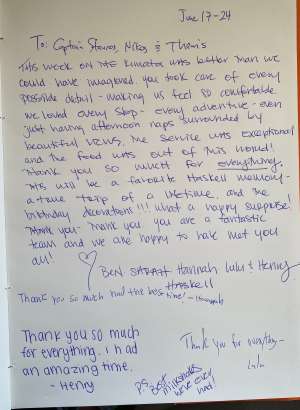 June 17-24
To: Captain Stavros, Nikos & Themis
This week on M/S Kimata was better than we
could have imagined. you took care of every
possible detail - making us feel so comfortable.
we loved every stop - every adventure - even
just having afternoon naps surrounded by
beautiful views. The service was exceptional
and the food was out of this world!
Thank you so much for everything.
This will be a favorite Haskell memory -
a true trip of a lifetime, and the
birthday decorations!!! What a happy surprise!
Thank you - Thank you! you are a fantastic
team and we are happy to have met you
all!
Ben Sarah Hannah Lulu & Henry
Haskell
Thank you so much had the best time! - Hannah
Thank you so much
for everything. I had
an amazing time.
- Henry
Thank you for everything -
Lulu
P.S. Best
milkshakes
we've ever
had!